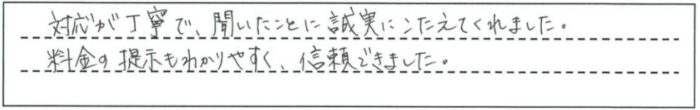 対応が丁寧で、聞いたことに誠実にこたえてくれました。
料金の提示もわかりやすく、信頼できました。